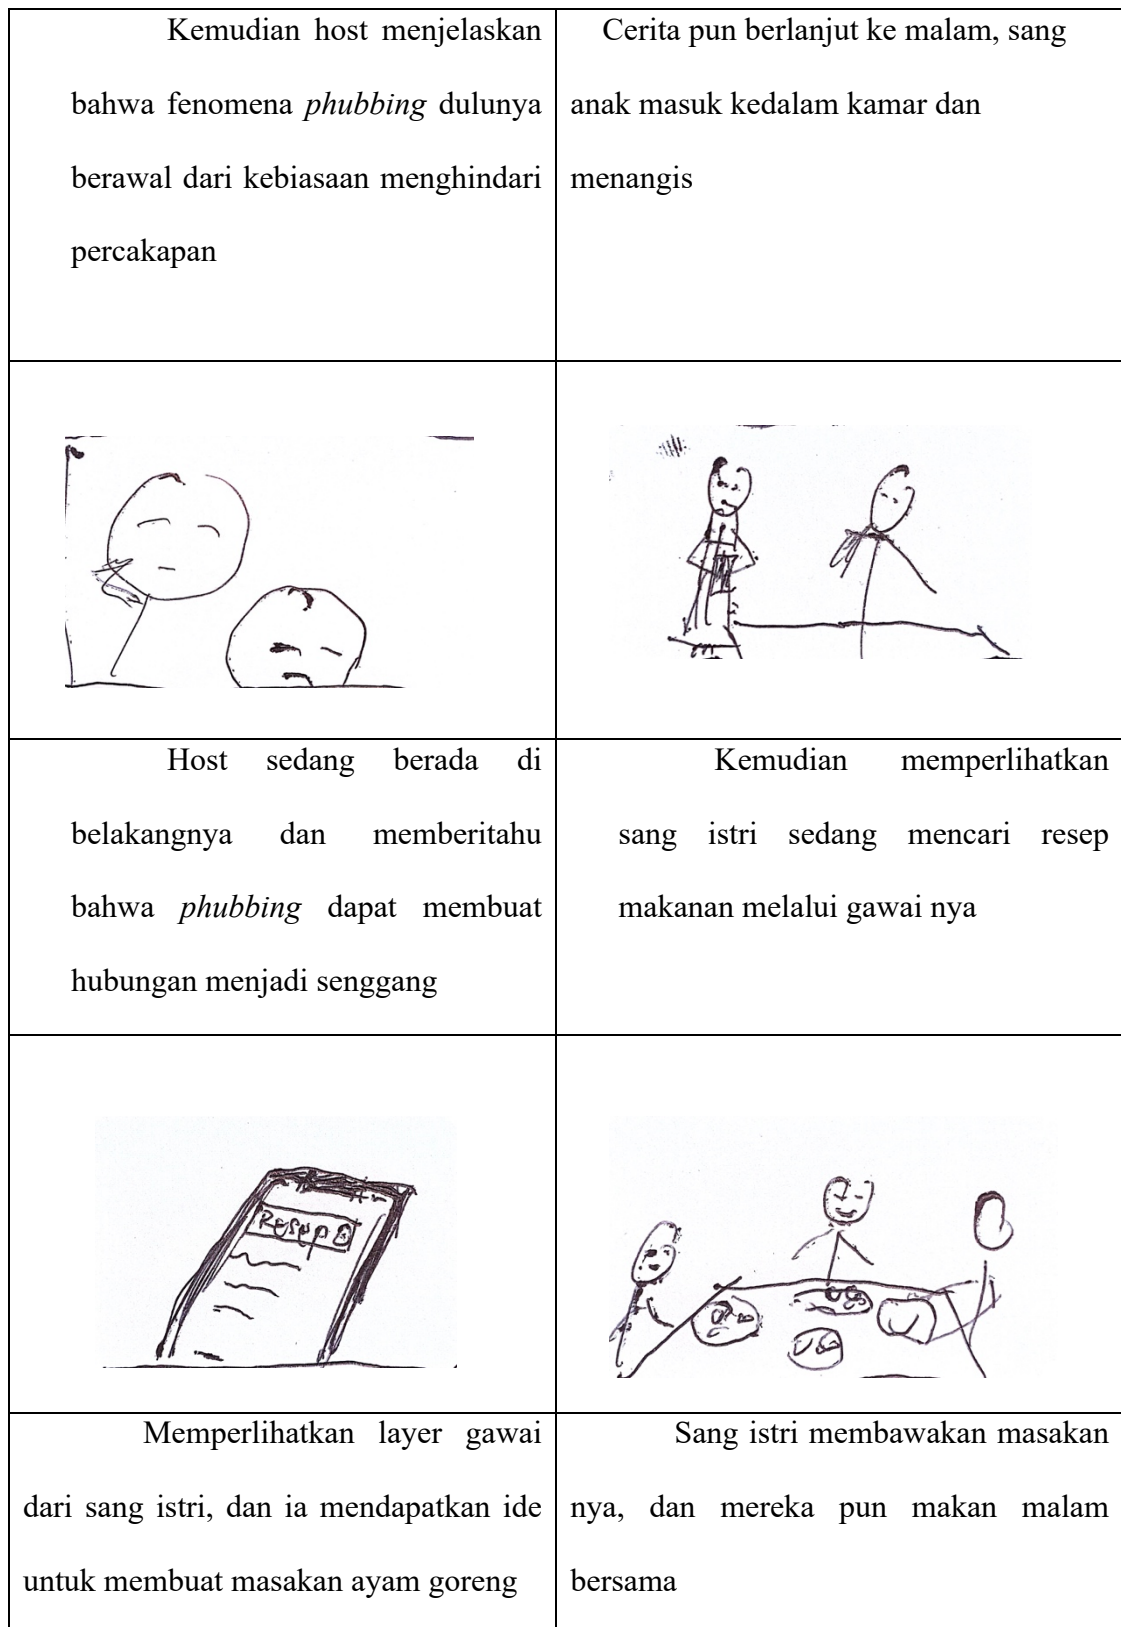 Kemudian host menjelaskan
bahwa fenomena phubbing dulunya
berawal dari kebiasaan menghindari
percakapan
Cerita pun berlanjut ke malam, sang
anak masuk kedalam kamar dan
menangis
Host sedang berada di
belakangnya dan memberitahu
bahwa phubbing dapat membuat
hubungan menjadi senggang
Kemudian memperlihatkan
sang istri sedang mencari resep
makanan melalui gawai nya
Resep
Memperlihatkan layer gawai
dari sang istri, dan ia mendapatkan ide
untuk membuat masakan ayam goreng
Sang istri membawakan masakan
nya, dan mereka pun makan malam
bersama